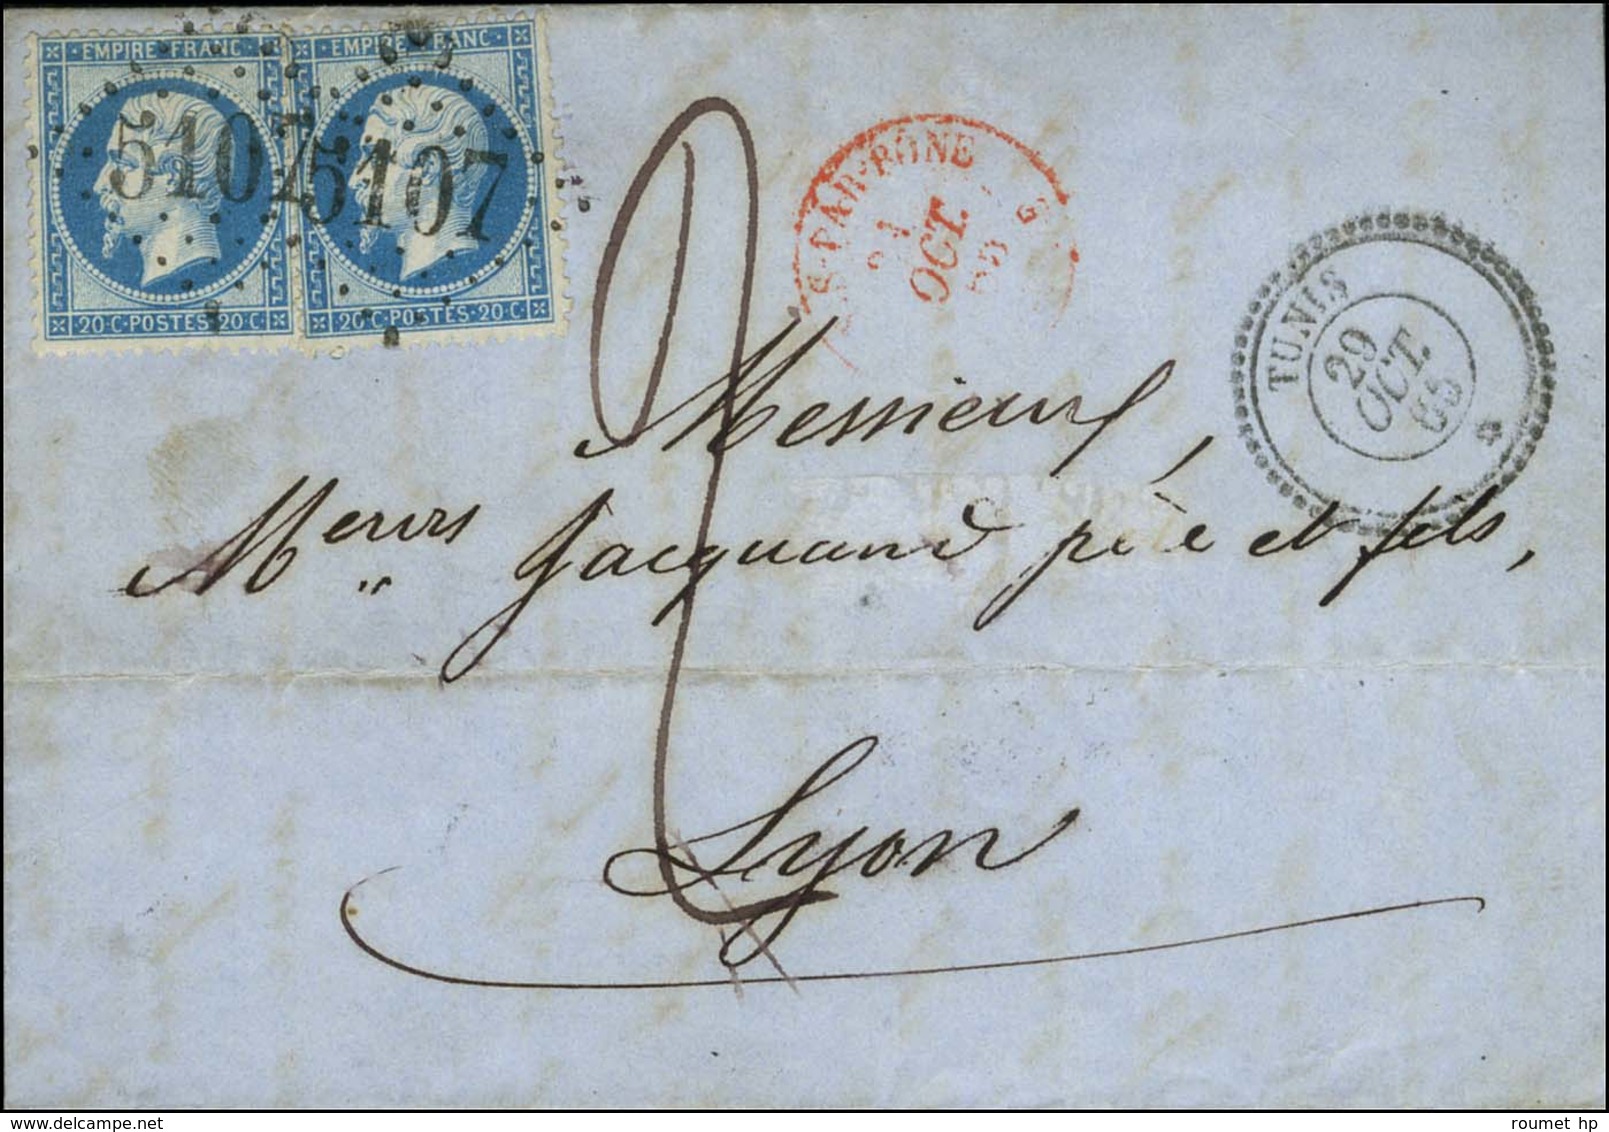 EMPIRE FRANC
EMPIRE FRANC
5107
5107
20·C·POSTES·20·C
20·C·POSTES·20·C
2
PAR-BÔNE
OCT.
TUNIS
29
OCT.
65
Messieurs
Merss Jacquand père et fils,
Lyon
roumet hp